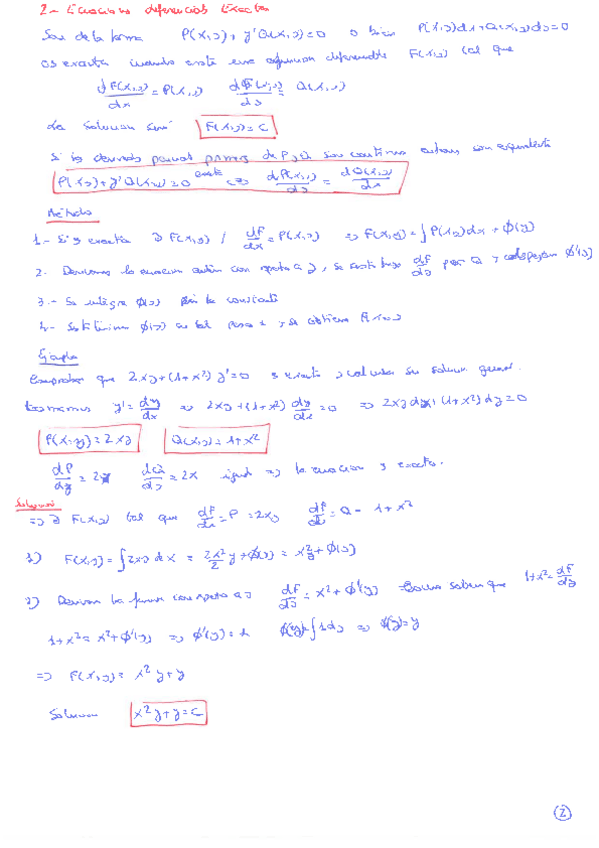 2- Ecuaciones diferenciales Exactas
Son de la forma P(x,y) + y'Q(x,y)=0 o bien P(x,y)dx+Q(x,y)dy=0
es exacta cuando existe una diferenciable F(x,y) tal que
dF(x,y)/dx = P(x,y) dF(x,y)/dy = Q(x,y)
La solucion será F(x,y)=C
Si las derivadas parciales primeras de P y Q son continuas son equivalente
P(x,y)+y'Q(x,y)=0 exacta <=> dP(x,y)/dy = dQ(x,y)/dx
Método
1.- Si es exacta ∃ F(x,y) / dF/dx = P(x,y) => F(x,y) = ∫P(x,y)dx + Φ(y)
2. Derivamos la ecuacion con respecto a y, se sustituye dF/dy por Q y despejar Φ'(y)
3.- Se integra Φ(y) sin la constante
4.- Sustituimos Φ(y) en el paso 1 y se obtiene F(x,y)
Ejemplo
Comprobar que 2xy+(1+x²)y'=0 es exacta y calcular su solucion general.
Tomamos y'=dy/dx => 2xy+(1+x²) dy/dx =0 => 2xy dx+(1+x²)dy=0
P(x,y)=2xy Q(x,y)=1+x²
dP/dy = 2x dQ/dy = 2x igual => la ecuacion es exacta.
Solucion
=> ∃ F(x,y) tal que dF/dx = P = 2xy dF/dx = Q = 1+x²
1) F(x,y)=∫2xy dx = 2x²/2 y+Φ(y) = x²y+Φ(y)
2) Derivar la funcion con respecto a y dF/dy = x²+Φ'(y) Como sabemos que 1+x²=dF/dy
1+x²=x²+Φ'(y) => Φ'(y)=1 Φ(y)=∫1dy => Φ(y)=y
=> F(x,y)= x²y+y
Solucion x²y+y=C
2